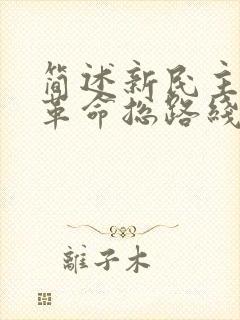 简述新民主
革命总路线
離子木